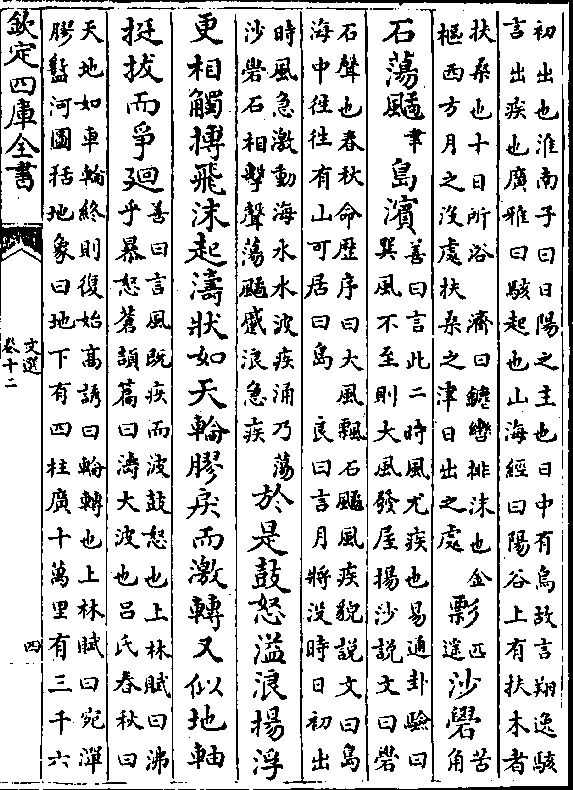 初出也淮南子曰日陽之主也日中有烏故言翔逸駭
言出疾也廣雅曰駭起也山海經曰陽谷上有扶木者
扶桑也十日所浴 濟曰轡排沫也金
樞西方月之没處扶桑之津日出之處
彯匹遥沙礐苦角
石蕩䬍聿島濱
善曰言此二時風尤疾也易通卦驗曰
巽風不至則大風發屋揚沙説文曰礐
石聲也春秋命歷序曰大風飄石䬍風疾貌説文曰島
海中往往有山可居曰島 良曰言月將没時日初出
時風急激動海水水波疾涌乃蕩
沙礐石相擊聲蕩䬍盛浪急疾
於是鼓怒溢浪揚浮
更相觸搏飛沫起濤狀如天輪膠戾而激轉又似地軸
挺拔而爭廻
善曰言風既疾而波鼓怒也上林賦曰沸
乎暴怒蒼頡篇曰濤大波也吕氏春秋曰
天地如車輪終則復始高誘曰輪轉也上林賦曰宛潬
膠盭河圖括地象曰地下有四柱廣十萬里有三千六
欽定四庫全書
文選
卷十二
四